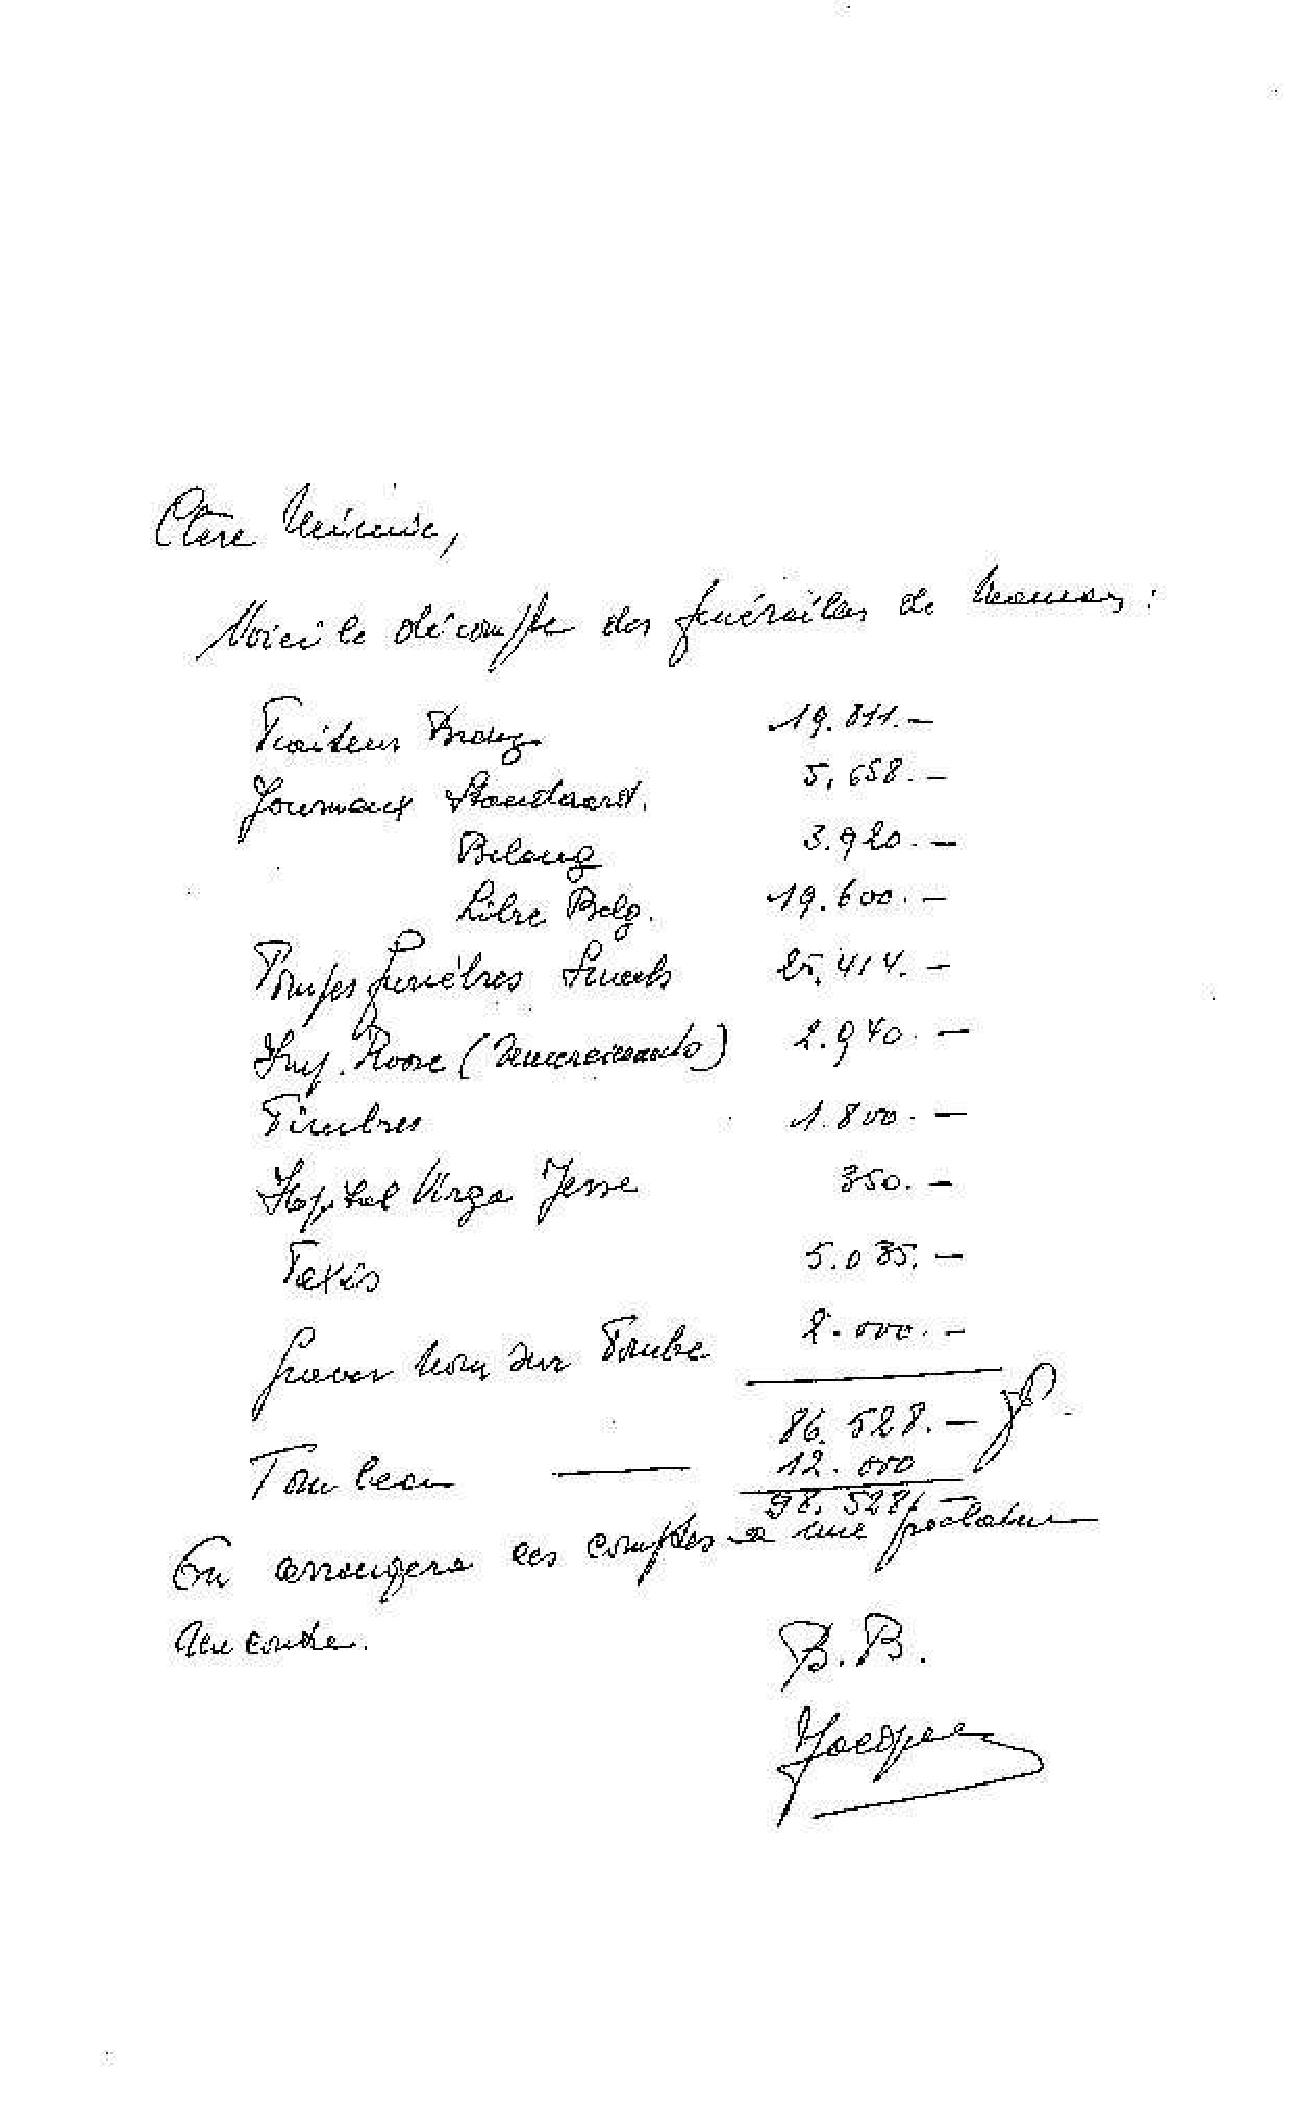 Chère Mimie,
Voici le décompte des funérailles de Maman :
Traiteur 19.811.-
Journaux Standaard. 5.658.-
Belang 3.920.-
Libre Belg. 19.600.-
Pompes funèbres Smeets 25.414.-
Imp. Roose (Remerciements) 2.940.-
Timbres 1.800.-
Hopital Virga Jesse 350.-
Taxis 5.035.-
Graver Nom sur Tombe 2.000.-
86.528.- F.
Tombeau — 12.000
98.528
On arrangera ces comptes à une prochaine
rencontre.
B.B.